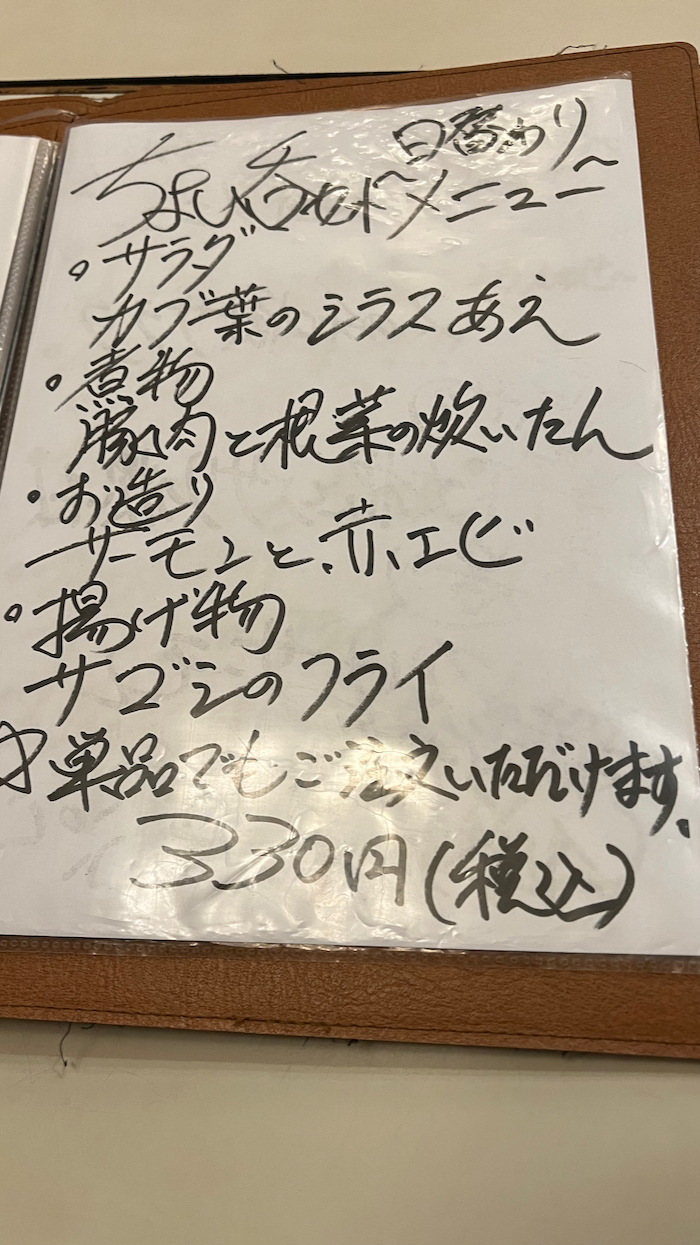 日替わり
ちょい呑みセットメニュー
・サラダ
カブ葉のシラスあえ
・煮物
豚肉と根菜の炊いたん
・お造り
サーモンと赤エビ
・揚げ物
サゴシのフライ
☆単品でもご注文いただけます。
330円(税込)